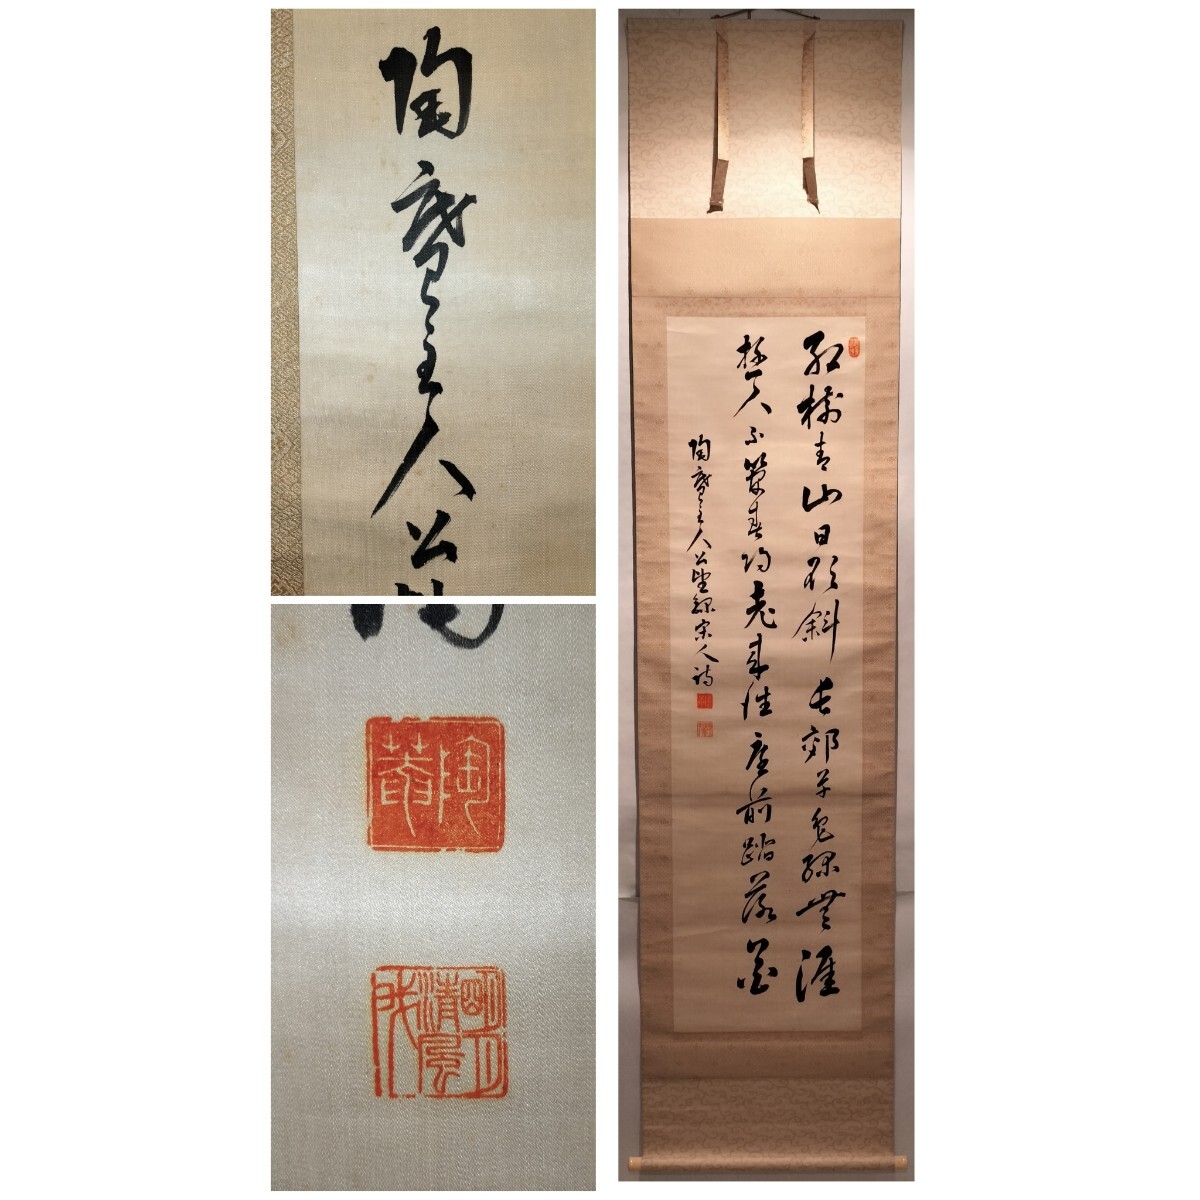 陶庵主人公
陶菴
明月清風我
紅樹青山日欲斜長郊草色緑無涯
遊人不管春将老来往亭前踏落花
陶庵主人公望録宋人詩